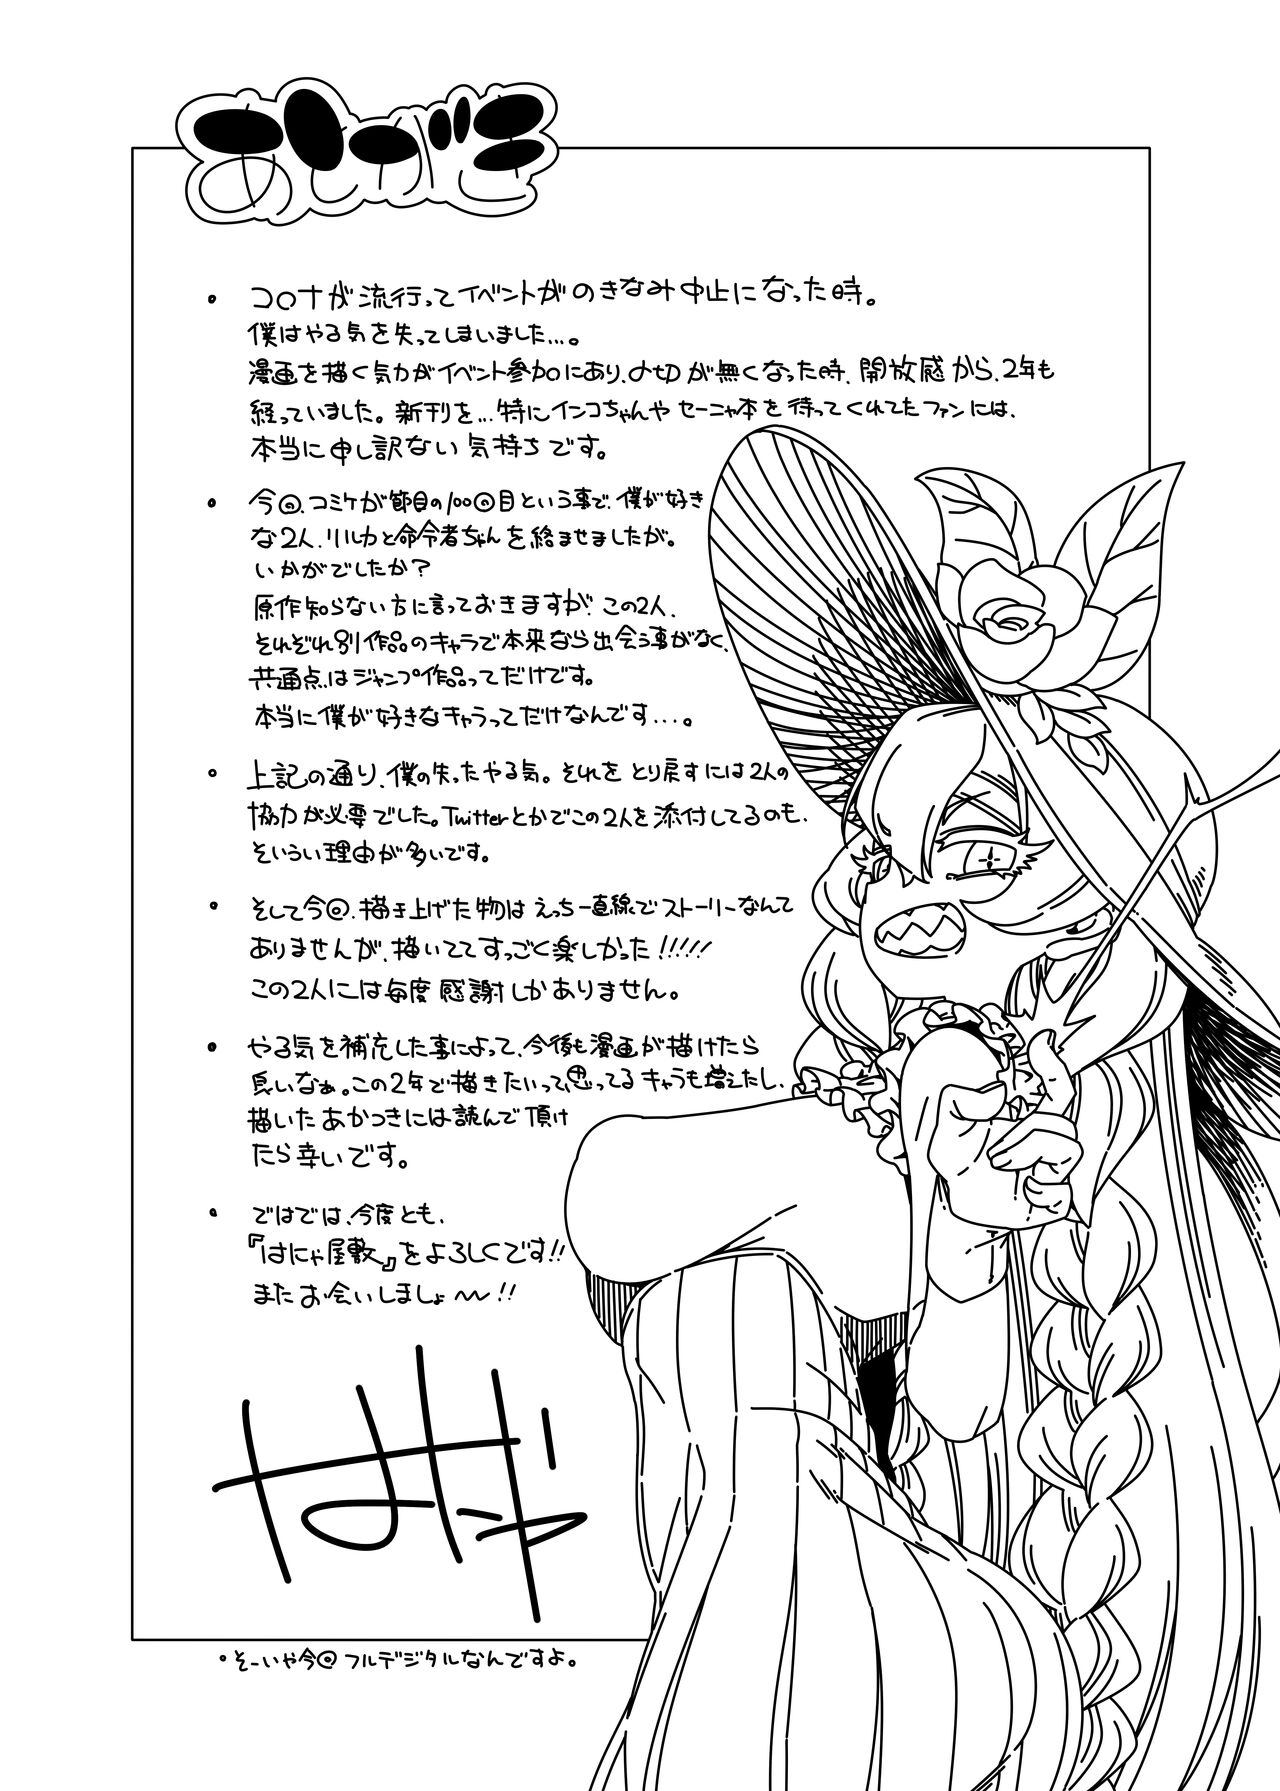 コロナが流行ってイベントがのきなみ中止になった時。
僕はやる気を失ってしまいました…。
漫画を描く気力がイベント参加にあり、〆切が無くなった時、開放感から、2年も
経っていました。新刊を…特にインコちゃんやセーニャ本を待ってくれてたファンには、
本当に申し訳ない気持ちです。
今回、コミケが節目の100回目という事で、僕が好き
な2人、リルカと命令者ちゃんを絡ませましたが。
いかがでしたか?
原作知らない方に言っておきますが、この2人、
それぞれ別作品のキャラで本来なら出会う事がなく、
共通点はジャンプ作品ってだけです。
本当に僕が好きなキャラってだけなんです...。
上記の通り、僕の失ったやる気。それをとり戻すには2人の
協力が必要でした。Twitterとかでこの2人を添付してるのも、
そういうい理由が多いです。
そして今回、描き上げた物はえっち一直線でストーリーなんて
ありませんが、描いててすっごく楽しかった!!!!!
この2人には毎度感謝しかありません。
やる気を補充した事によって、今後も漫画が描けたら
良いなぁ。この2年で描きたいって思ってるキャラも増えたし、
描いたあかつきには読んで頂け
たら幸いです。
ではでは、今度とも、
『はにゃ屋敷』をよろしくです!!
またお会いしましょ〜〜!!
はにゃ
そーいや今回フルデジタルなんですよ。